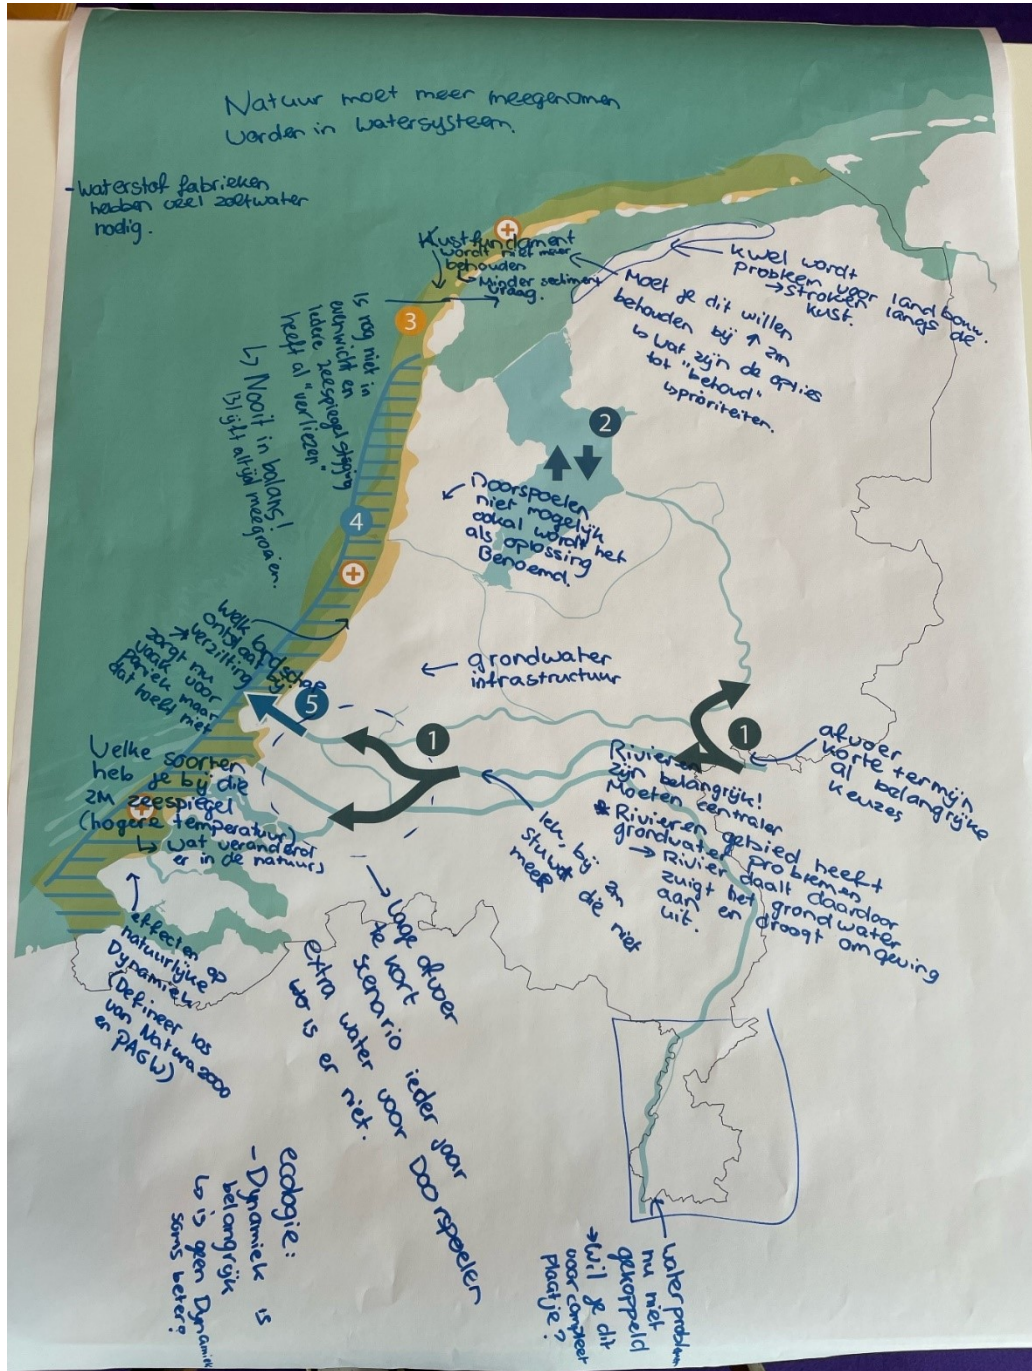 Natuur moet meer meegenomen
worden in watersysteem.
- Waterstof fabrieken
hebben veel zoetwater
nodig.
Kustfundament
wordt niet meer
behouden
↳ Minder sediment
vraag.
kwel wordt
probleem voor landbouw.
→ stroken langs de
kust.
Moet je dit willen
behouden bij ↑ 2m
↳ wat zijn de opties
tot "behoud"
↳ prioriteiten.
3
Is nog niet in
evenwicht en
iedere zeespiegelstijging
heeft al "verliezen"
↳ Nooit in balans!
Blijft altijd meegroeien.
2
4
Doorspoelen
niet mogelijk
ookal wordt het
als oplossing
Benoemd.
welk landschap
ontstaat bij
→ verzilting
zorgt nu
vaak voor
paniek maar
dat hoeft niet
grondwater
infrastructuur
5
1
1
afvoer
korte termijn
al belangrijke
keuzes
Welke soorten
heb je bij die
2m zeespiegel
(hogere temperatuur)
↳ Wat veranderd
er in de natuur
Rivieren
zijn belangrijk!
Moeten centraler
* Rivieren gebied heeft
grondwater problemen
→ Rivier daalt daardoor
zuigt het grondwater
aan en droogt omgeving
uit.
lek, bij 2m
stuwt die niet
meer
effecten op
natuurlijke
Dynamiek
(Defineer los
van Natura 2000
en PAGW)
→ lage afvoer
te kort scenario ieder jaar
extra water voor Doorspoelen
wor is er niet.
ecologie:
- Dynamiek is
belangrijk
↳ is geen Dynamiek
soms beter?
waterproblem
nu niet
gekoppeld
→ Wil je dit
voor compleet
plaatje?